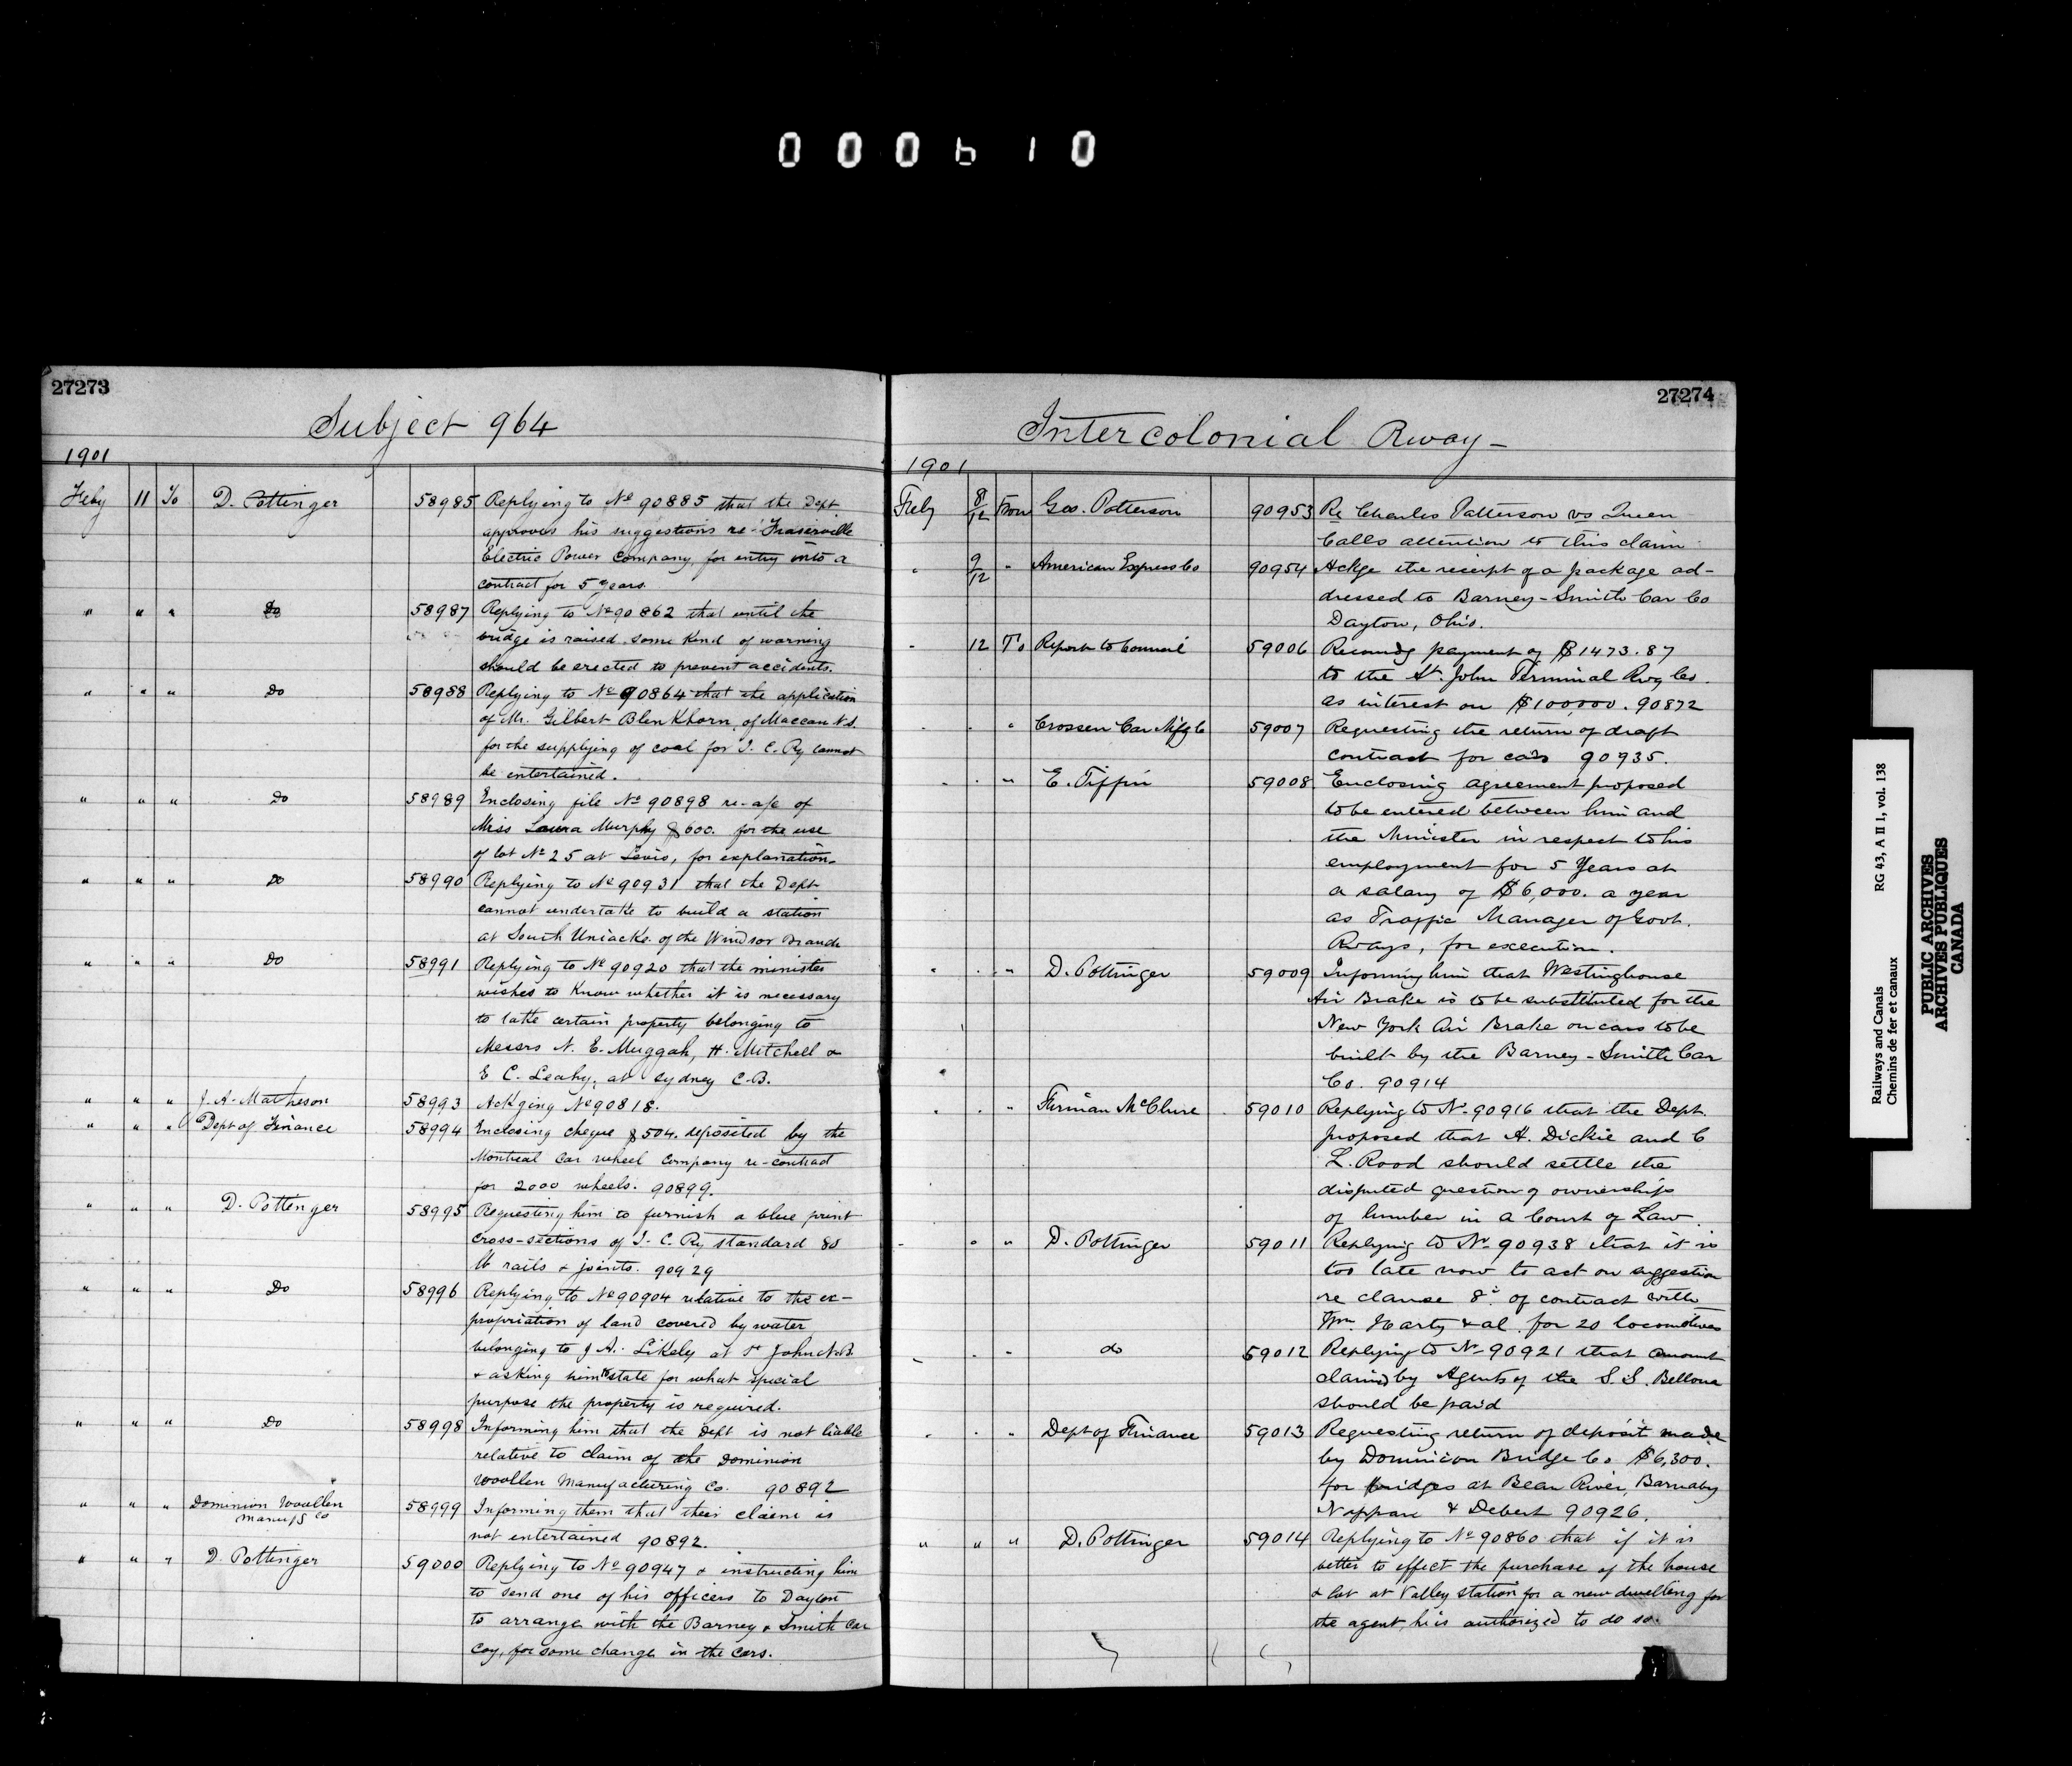 000610
27273
Subject 964
1901
Feby 11 To D. Pottinger 58985 Replying to No 90885 that the Dept
approves his suggestions re Fraserville
Electric Power Company, for entry into a
contract for 5 years.
" " " Do 58987 Replying to No 90862 that until the
bridge is raised some kind of warning
should be erected to prevent accidents.
" " " Do 58988 Replying to No 90864 that the application
of Mr. Gilbert Blenkhorn, of Maccan N.S.
for the supplying of coal for I. C. Ry cannot
be entertained.
" " " Do 58989 Enclosing file No 90898 re a/c of
Miss Laura Murphy $600. for the use
of lot No 25 at Levis, for explanation.
" " " Do 58990 Replying to No 90931 that the Dept
cannot undertake to build a station
at South Uniacke of the Windsor Branch
" " " Do 58991 Replying to No 90920 that the minister
wishes to know whether it is necessary
to take certain property belonging to
Messrs N. E. Muggah, H. Mitchell &
E C. Leahy, at Sydney C.B.
" " " J. A. Matheson 58993 Ackging No 90818.
" " " Dept of Finance 58994 Enclosing cheque $504. deposited by the
Montreal Car wheel Company re-contract
for 2000 wheels. 90899.
" " " D. Pottinger 58995 Requesting him to furnish a blue print
cross-sections of I. C. Ry standard 80
lb rails & joints. 90929
" " " Do 58996 Replying to No 90904 relative to the ex-
propriation of land covered by water
belonging to J A. Likely at St John N.B.
& asking him to state for what special
purpose the property is required.
" " " Do 58998 Informing him that the Dept is not liable
relative to claim of the Dominion
Woollen Manufacturing Co. 90892
" " " Dominion Woollen
Manufg Co 58999 Informing them that their claim is
not entertained 90892.
" " " D. Pottinger 59000 Replying to No 90947 & instructing him
to send one of his officers to Dayton
to arrange with the Barney & Smith Car
Coy, for some change in the cars.
27274
Intercolonial Rway -
1901
Feby 8/12 From Geo. Patterson 90953 Re Charles Patterson vs Queen
Calls attention to this claim
" 9/12 " American Express Co 90954 Ackge the receipt of a package ad-
dressed to Barney-Smith Car Co
Dayton, Ohio.
" 12 To Report to Council 59006 Recomdg payment of $1473.87
to the St. John Terminal Rwy Co.
as interest on $100,000. 90872
" " " Crossen Car Mfg Co 59007 Requesting the return of draft
contract for cars 90935.
" " " E. Tiffin 59008 Enclosing agreement proposed
to be entered between him and
the Minister in respect to his
employment for 5 Years at
a salary of $6,000. a year
as Traffic Manager of Govt.
Rways, for execution.
" " " D. Pottinger 59009 Informing him that Westinghouse
Air Brake is to be substituted for the
New York Air Brake on cars to be
built by the Barney-Smith Car
Co. 90914
" " " Firman McClure 59010 Replying to No 90916 that the Dept.
proposed that A. Dickie and C
L. Rood should settle the
disputed question of ownership
of lumber in a Court of Law.
" " " D. Pottinger 59011 Replying to No 90938 that it is
too late now to act on suggestion
re clause 8 of contract with
Wm. Harty & al. for 20 locomotives
" " " do 59012 Replying to No 90921 that amount
claimed by Agents of the S.S. Bellona
should be paid
" " " Dept of Finance 59013 Requesting return of deposit made
by Dominion Bridge Co $6,300.
for bridges at Bear River, Barnaby
Nappan & Debert 90926.
" " " D. Pottinger 59014 Replying to No 90860 that if it is
better to effect the purchase of the house
& lot at Valley Station for a new dwelling for
the agent, he is authorized to do so.
Railways and Canals RG 43, A II 1, vol. 138
Chemins de fer et canaux
PUBLIC ARCHIVES
ARCHIVES PUBLIQUES
CANADA